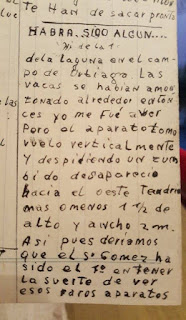 TE HAN de sacar pronto
HABRA. SIDO ALGUN....
de la laguna en el cam
po de Ortiagro. Las
vacas se habian amon
tonado alrededor enton
ces yo me fué a ver
Pero el aparato tomo
vuelo verticalmente
Y despidiendo un zum
bido desaparecio
hacia el oeste Tendria
mas o menos 1 1/2 de
alto y ancho 2m.
Asi pues deriamos
que el Sº Gomez ha
sido el 1º en tener
la suerte de ver
esos raros aparatos